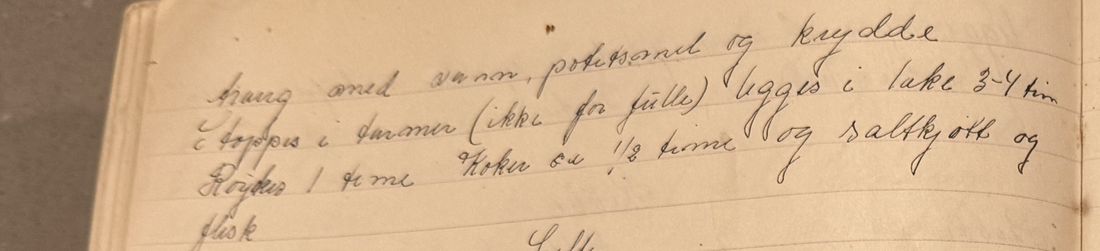 gang med vann, potetsmel og krydde
stoppes i tarmer (ikke for fulle) legges i lake 3-4 tim
Røykes 1 time Koker ca 1/2 time og saltkjøtt og
flesk